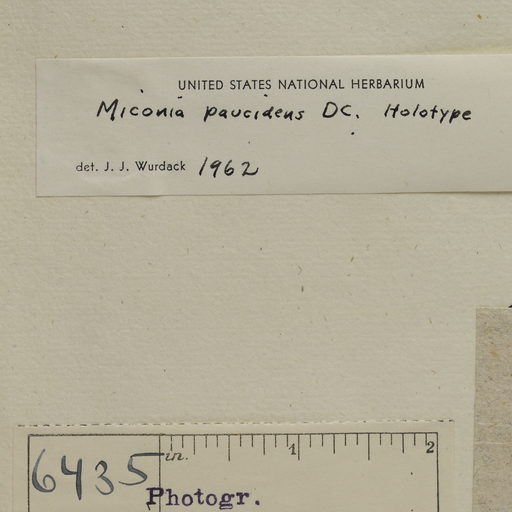 UNITED STATES NATIONAL HERBARIUM
Miconia paucidens DC. Holotype
det. J. J. Wurdack 1962
6435 in. 1 2
Photogr.